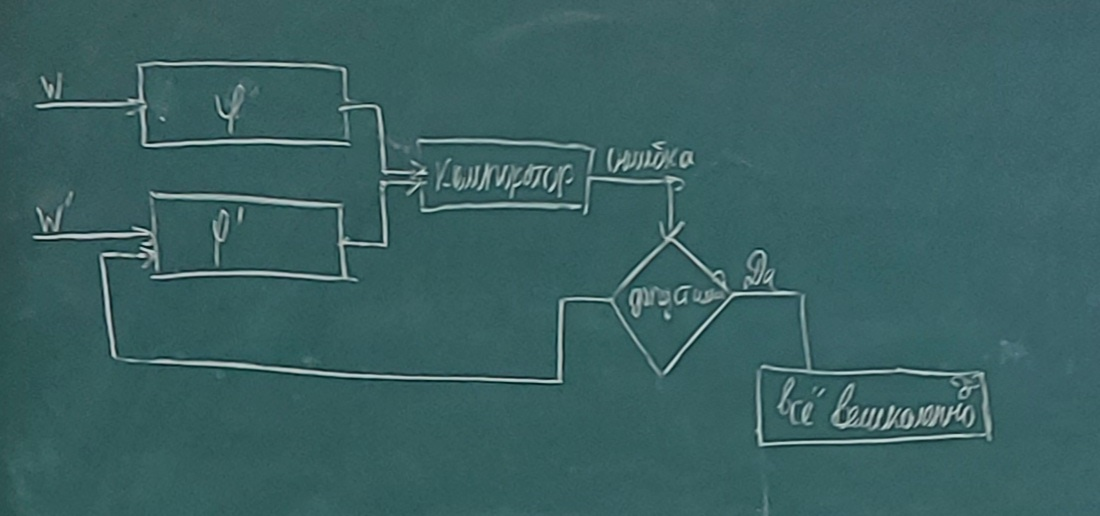 W
φ
W'
φ'
Компаратор
ошибка
допустима?
Да
всё великолепно